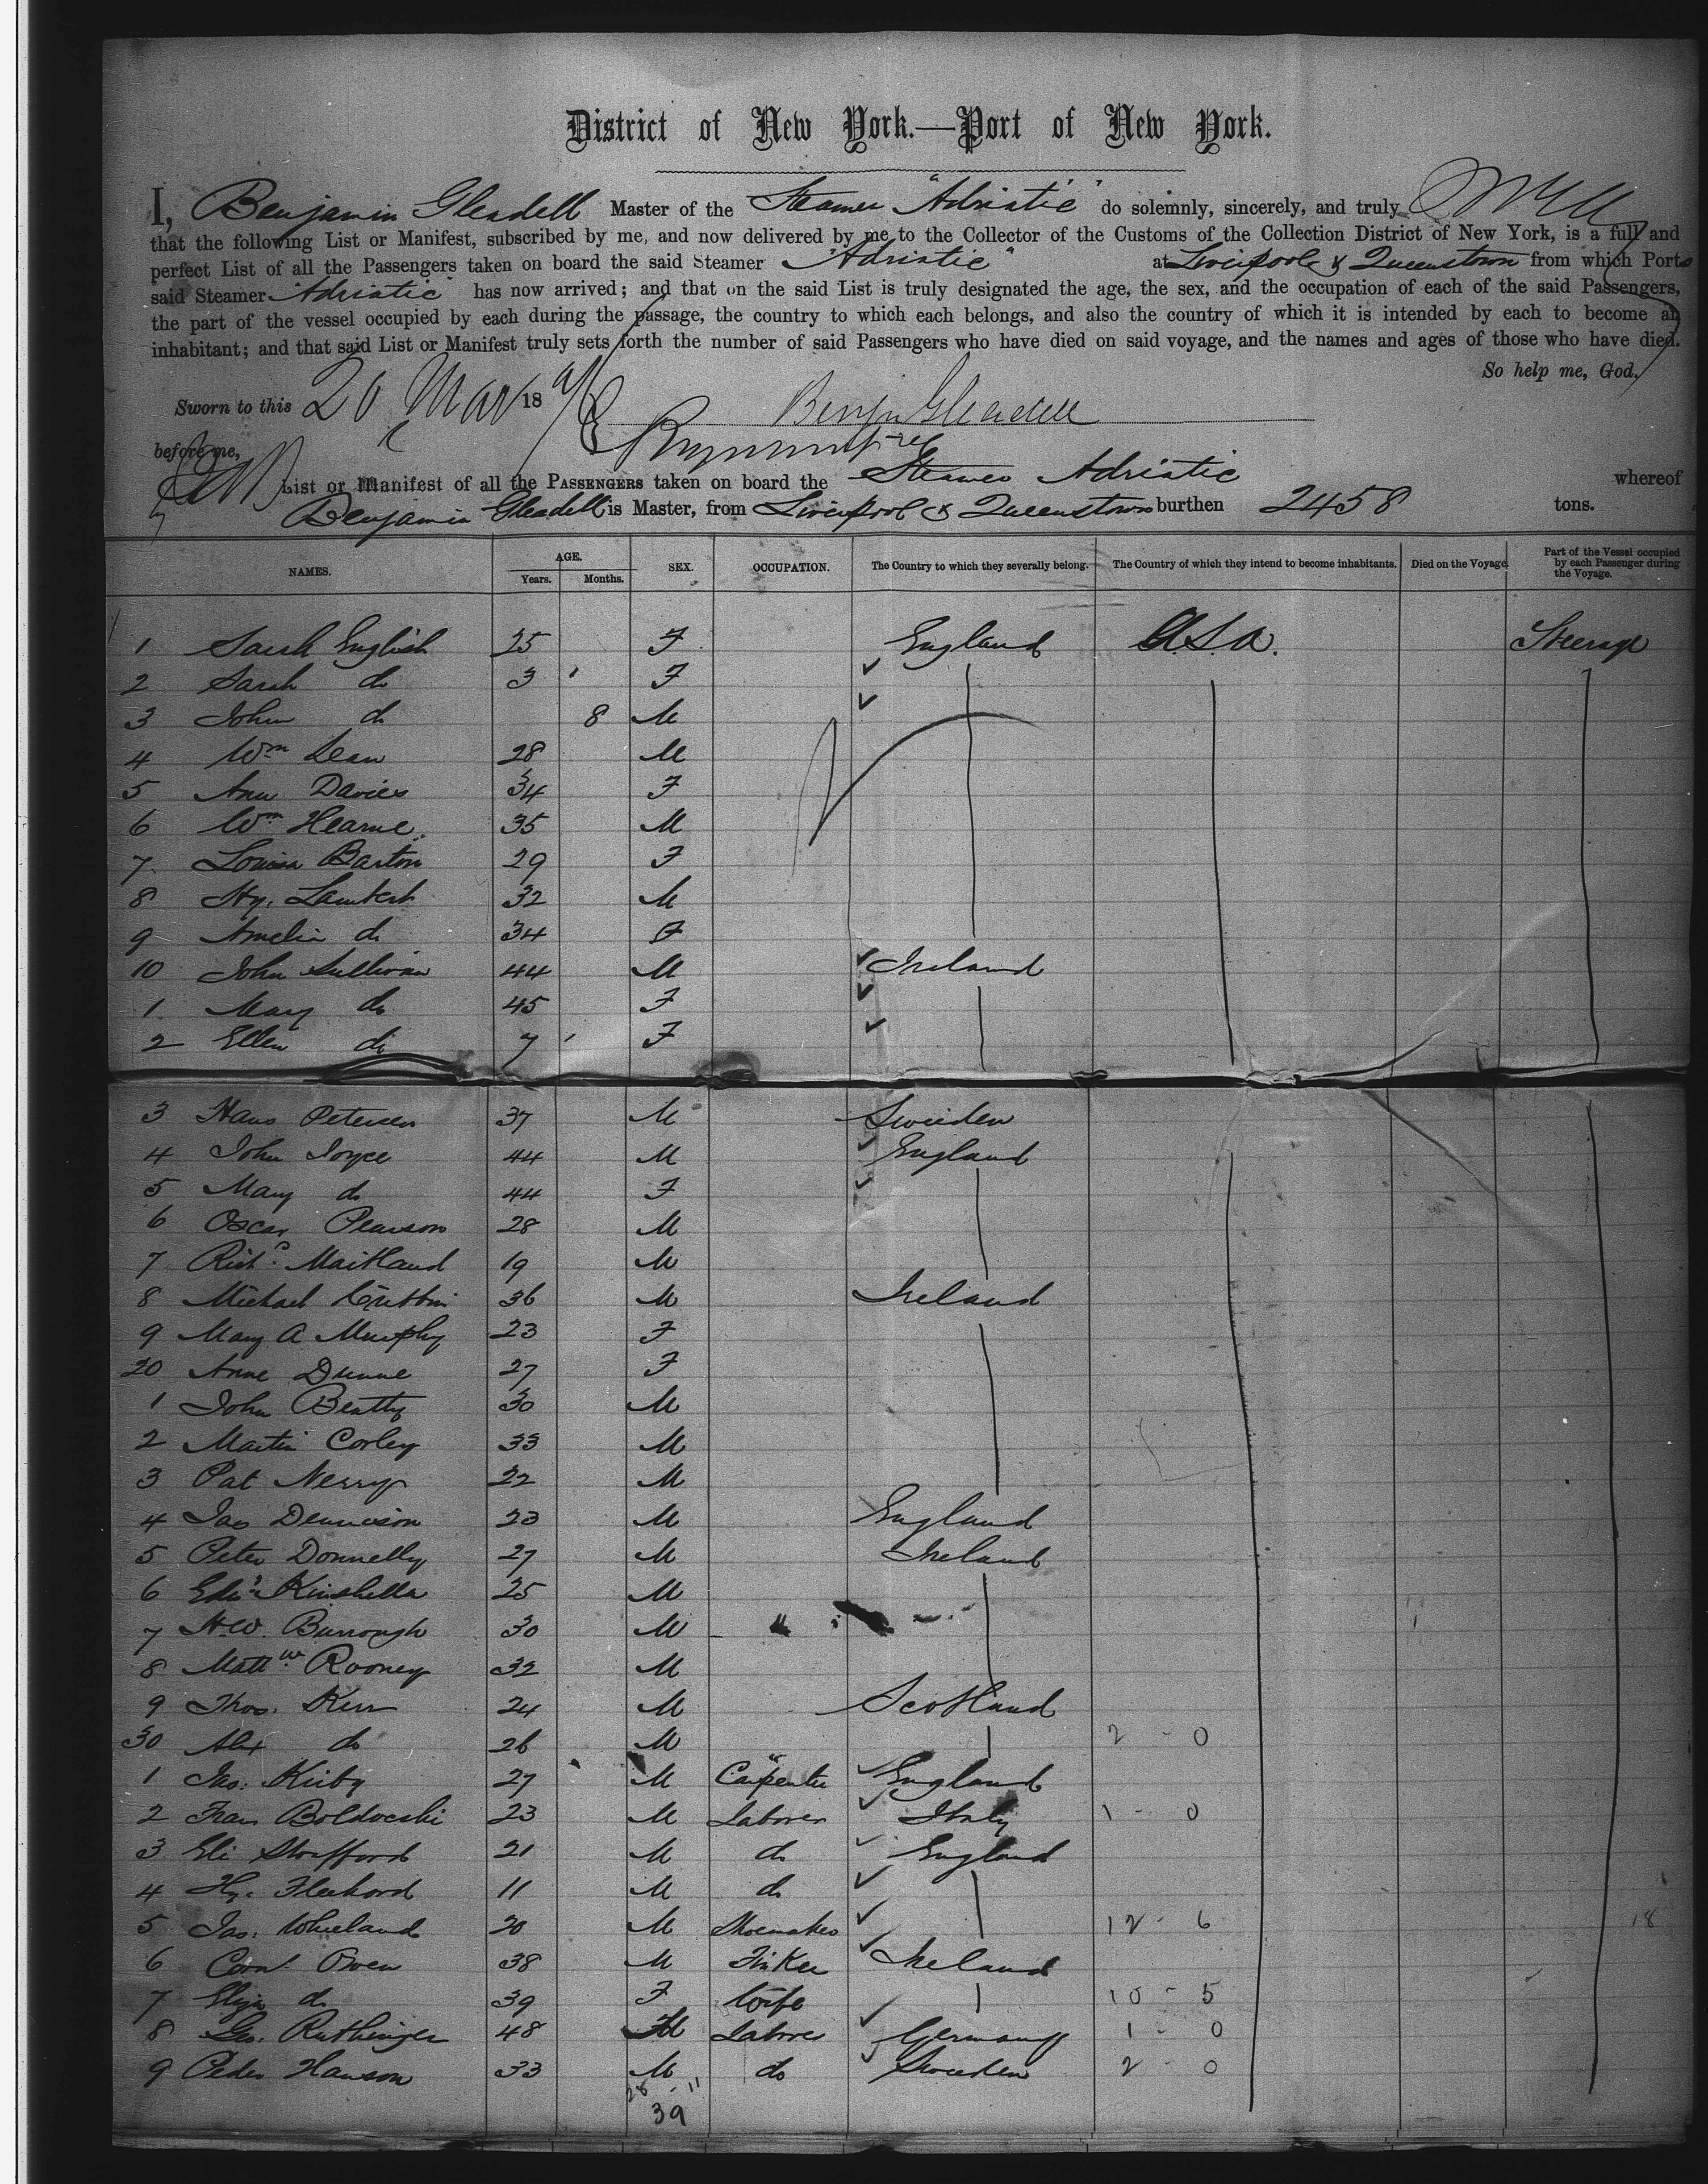 District of New York.—Port of New York.
I, Benjamin Gleadell Master of the Steamer "Adriatic" do solemnly, sincerely, and truly
that the following List or Manifest, subscribed by me, and now delivered by me to the Collector of the Customs of the Collection District of New York, is a full and
perfect List of all the Passengers taken on board the said Steamer "Adriatic" at Liverpool & Queenstown from which Ports
said Steamer "Adriatic" has now arrived; and that on the said List is truly designated the age, the sex, and the occupation of each of the said Passengers,
the part of the vessel occupied by each during the passage, the country to which each belongs, and also the country of which it is intended by each to become an
inhabitant; and that said List or Manifest truly sets forth the number of said Passengers who have died on said voyage, and the names and ages of those who have died.
So help me, God.
Sworn to this 20 Mar 18 Benjn Gleadell
before me,
List or Manifest of all the PASSENGERS taken on board the Steamer Adriatic whereof
Benjamin Gleadell is Master, from Liverpool & Queenstown burthen 2458 tons.
NAMES. AGE. Years. Months. SEX. OCCUPATION. The Country to which they severally belong. The Country of which they intend to become inhabitants. Died on the Voyage. Part of the Vessel occupied by each Passenger during the Voyage.
1 Sarah English 25 F England U.S.A. Steerage
2 Sarah do 3 F
3 John do 8 M
4 Wm Dean 28 M
5 Ann Davies 34 F
6 Wm Hearne 35 M
7 Louisa Barton 29 F
8 Hy. Lambert 32 M
9 Amelia do 34 F
10 John Sullivan 44 M Ireland
1 Mary do 45 F
2 Ellen do 7 F
3 Hans Petersen 37 M Sweden
4 John Joyce 44 M England
5 Mary do 44 F
6 Oscar Pearson 28 M
7 Richd Maitland 19 M
8 Michael 36 M Ireland
9 Mary A Murphy 23 F
20 Anne Dunne 27 F
1 John Beatty 30 M
2 Martin Corley 33 M
3 Pat 22 M
4 Jas Dennison 23 M England
5 Peter Donnelly 27 M Ireland
6 Kinshella 25 M
7 H.W. Burrough 30 M
8 Mattw Rooney 32 M
9 Thos. Kerr 24 M Scotland
30 Alex do 26 M 2 - 0
1 Jas. Kirby 27 M Carpenter England
2 Fran Boldocchi 23 M Laborer Italy 1 - 0
3 Eli 21 M do England
4 Hy. 11 M do
5 Jas. Wheeland 20 M Shoemaker 12 - 6 18
6 Owen 38 M Tinker Ireland
7 Eliza do 39 F Wife 10 - 5
8 Geo. Ruthinger 48 M Laborer Germany 1 - 0
9 Peder Hanson 33 M do Sweden 2 - 0
28 - 11
39